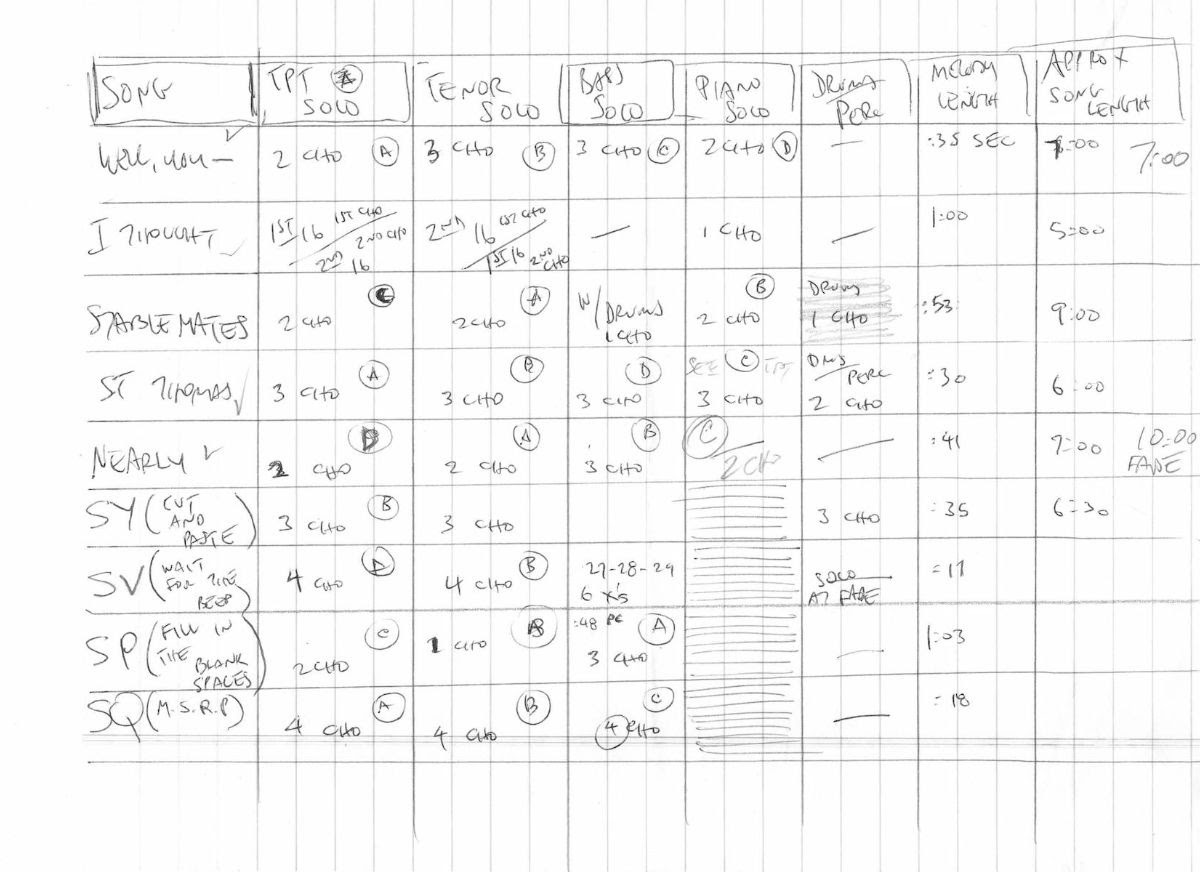 SONG
TPT SOLO
TENOR SOLO
BARI SOLO
PIANO SOLO
DRUMS/PERC
MELODY LENGTH
APPROX SONG LENGTH
WELL, YOU —
2 CHO (A)
3 CHO (B)
3 CHO (C)
2 CHO (D)
—
:35 SEC
7:00
I THOUGHT
1ST 16 1ST CHO
2ND 16 2ND CHO
2ND 16 1ST CHO
1ST 16 2ND CHO
—
1 CHO
—
1:00
5:00
STABLEMATES
2 CHO (C)
2 CHO (A)
W/DRUMS
1 CHO
2 CHO (B)
DRUMS
1 CHO
:53
9:00
ST THOMAS
3 CHO (A)
3 CHO (B)
3 CHO (D)
SEE (C) TPT
3 CHO
DMS/PERC
2 CHO
:30
6:00
NEARLY
2 CHO (D)
2 CHO (A)
3 CHO (B)
(C) 2 CHO
—
:41
10:00
FADE
SY (CUT AND PASTE)
3 CHO (B)
3 CHO
3 CHO
:35
6:30
SV (WAIT FOR THE BEEP)
4 CHO (A)
4 CHO (B)
27-28-29
6 X's
SOLO
AT FADE
SP (FILL IN THE BLANK SPACES)
2 CHO (C)
1 CHO (B)
:48
3 CHO (A)
—
1:03
SQ (M.S.R.P)
4 CHO (A)
4 CHO (B)
4 CHO (C)
—
:18